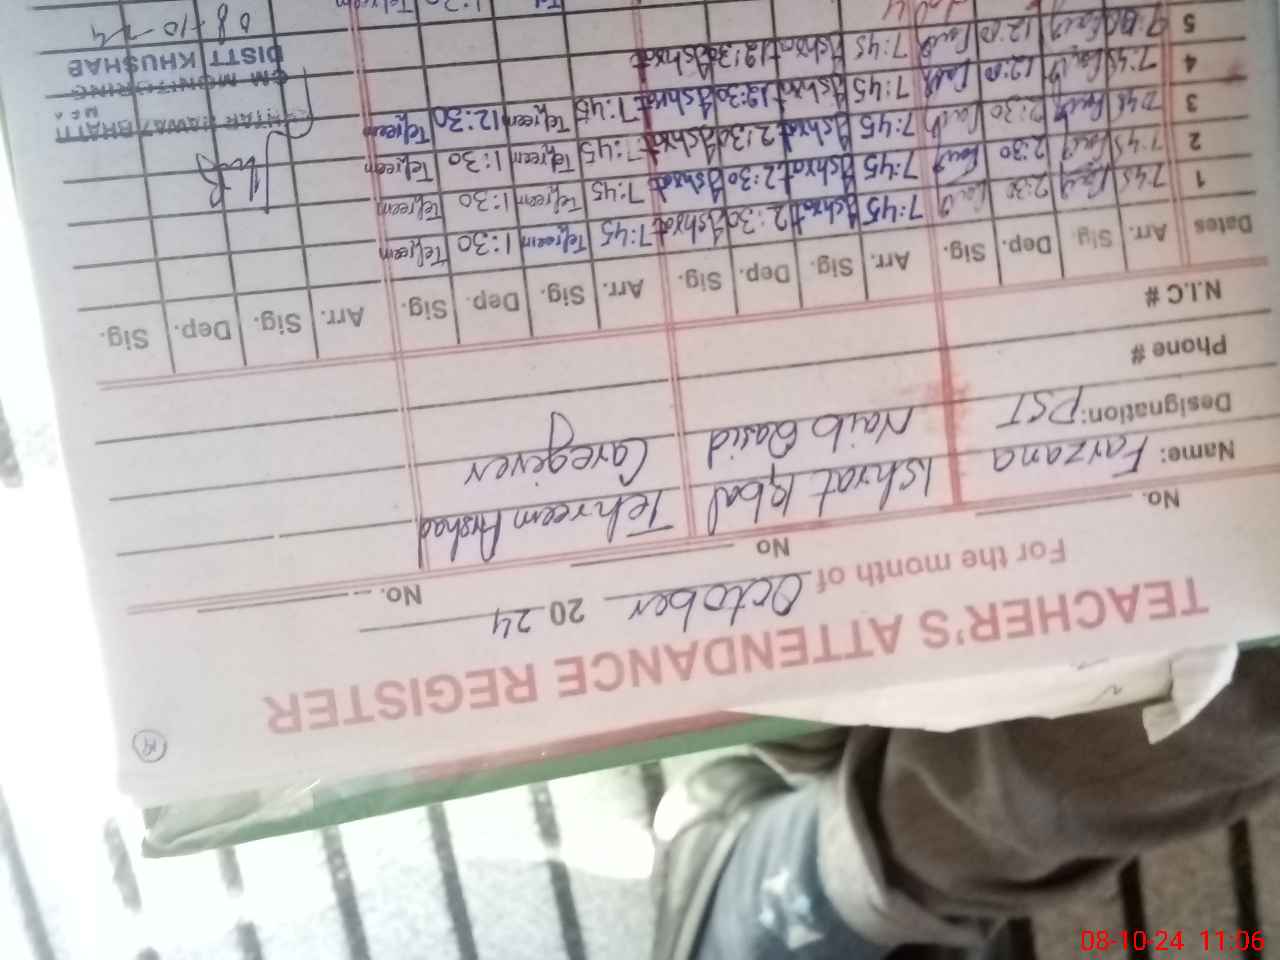 TEACHER'S ATTENDANCE REGISTER
For the month of October 2024
No. No No.
Name: Farzana Ishrat Iqbal Tehreem Arshad
Designation: PST Naib Qasid Caregiver
Phone #
N.I.C #
Dates Arr. Sig. Dep. Sig. Arr. Sig. Dep. Sig. Arr. Sig. Dep. Sig. Arr. Sig. Dep. Sig.
1 7:45 2:30 7:45 Ishrat 2:30 Ishrat 7:45 Tehreem 1:30 Tehreem
2 7:45 2:30 7:45 Ishrat 2:30 Ishrat 7:45 Tehreem 1:30 Tehreem
3 7:45 2:30 7:45 Ishrat 2:30 Ishrat 7:45 Tehreem 1:30 Tehreem
4 7:45 12:00 7:45 Ishrat 12:30 Ishrat 7:45 Tehreem 12:30 Tehreem
5 12:00 7:45 Ishrat 12:30 Ishrat
BHATTI
CM MONITORING
DISTT KHUSHAB
08-10-24
08-10-24 11:06